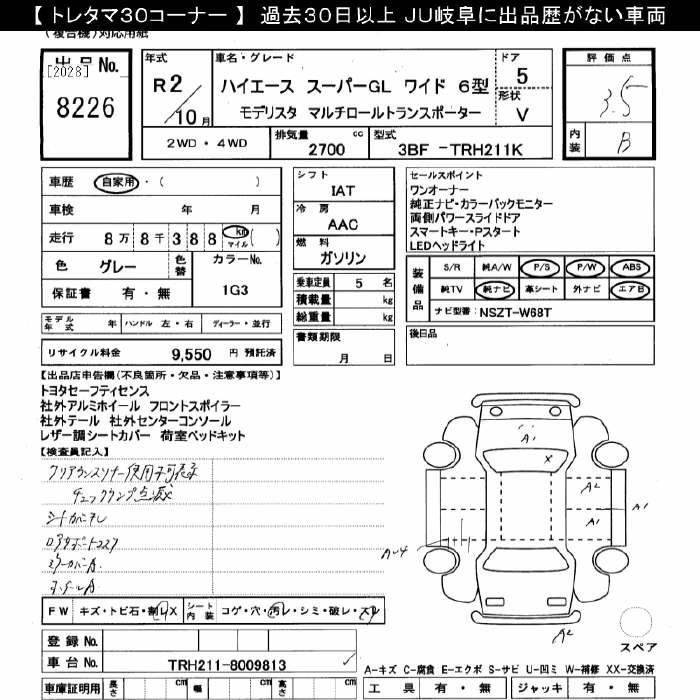 【トレタマ30コーナー】 過去30日以上 JU岐阜に出品歴がない車両
(複合機)対応用紙
出品No.
[2028]
8226
年式
R2/10月
車名・グレード
ハイエース スーパーGL ワイド 6型
モデリスタ マルチロールトランスポーター
ドア
5
形状
V
評価点
3.5
内装
B
2WD・4WD
排気量
2700 cc
型式
3BF -TRH211K
車歴 自家用・( )
車検 年 月
走行 8万8千388 km マイル ( )
色 グレー 色替
カラーNo.
1G3
保証書 有・無
シフト
IAT
冷房
AAC
燃料
ガソリン
乗車定員 5 名
積載量 kg
総重量 kg
書類期限
月 日
セールスポイント
ワンオーナー
純正ナビ・カラーバックモニター
両側パワースライドドア
スマートキー・Pスタート
LEDヘッドライト
装備品
S/R 純A/W P/S P/W ABS
純TV 純ナビ 革シート 外ナビ エアB
ナビ型番: NSZT-W68T
後日品
モデル年式 年 ハンドル 左・右 ディーラー・並行
リサイクル料金 9,550 円 預託済
【出品店申告欄(不良箇所・欠品・注意事項等)】
トヨタセーフティセンス
社外アルミホイール フロントスポイラー
社外テール 社外センターコンソール
レザー調シートカバー 荷室ベッドキット
【検査員記入】
クリアランスソナー使用不可表示
チェックランプ点滅
シートカバーアレ
ミラーカバーA
FW キズ・トビ石・割レX
シート内装 コゲ・穴・汚レ・シミ・破レ・スレ
A1
X
A2
A1
A1
A-4
A2
スペア
登録No.
車台No. TRH211-8009813
A-キズ C-腐食 E-エクボ S-サビ U-凹ミ W-補修 XX-交換済
車庫証明用 長さ cm 幅 cm 高さ cm
工具 有・無 ジャッキ 有・無